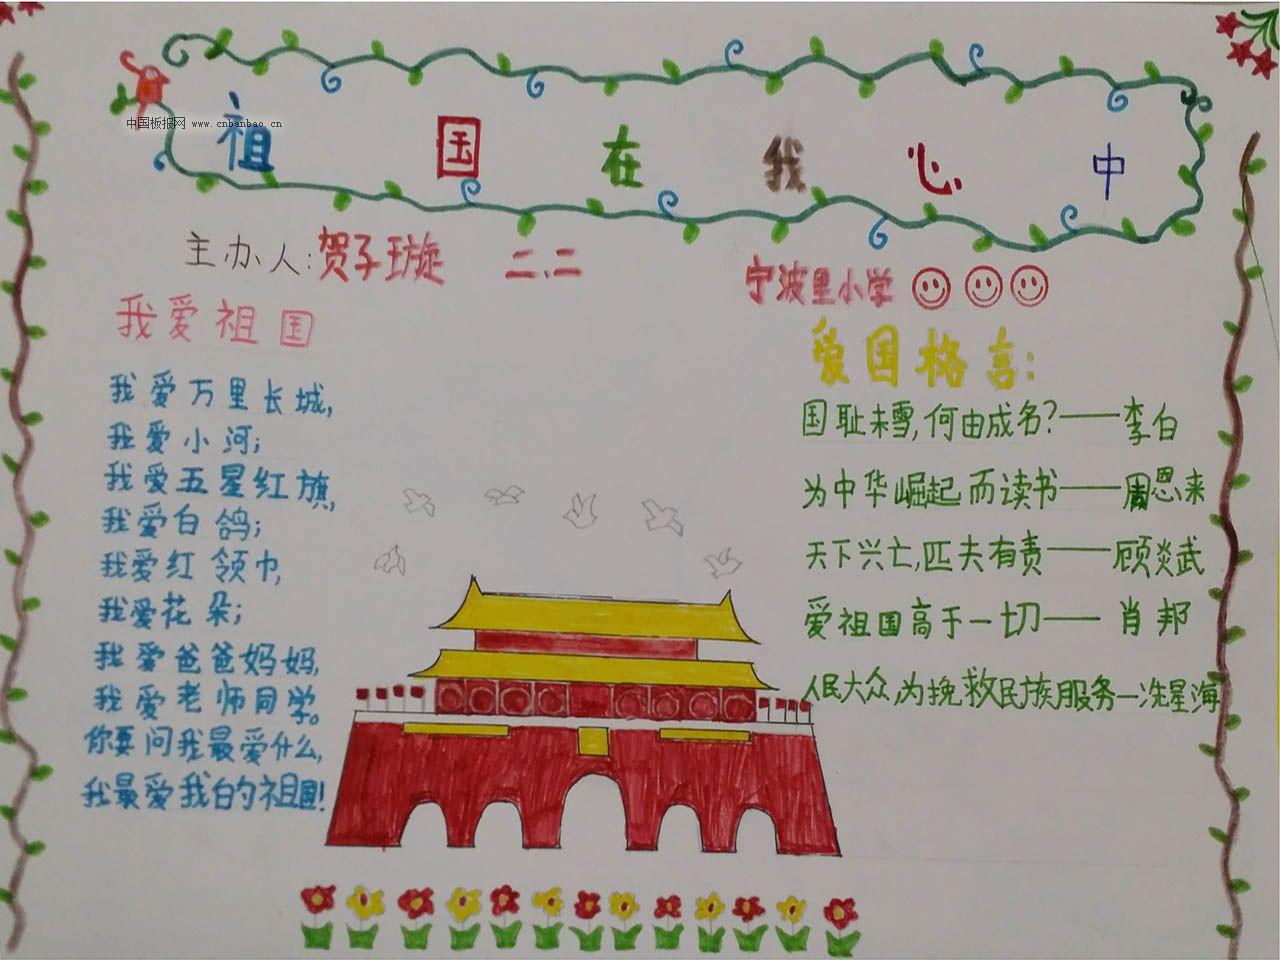 祖国在我心中
中国板报网 www.cnbanbao.cn
主办人:贺子璇 二、二
宁波里小学
我爱祖国
我爱万里长城,
我爱小河;
我爱五星红旗,
我爱白鸽;
我爱红领巾,
我爱花朵;
我爱爸爸妈妈,
我爱老师同学。
你要问我最爱什么,
我最爱我的祖国!
爱国格言:
国耻未雪,何由成名?——李白
为中华崛起而读书——周恩来
天下兴亡,匹夫有责——顾炎武
爱祖国高于一切——肖邦
人民大众,为挽救民族服务—冼星海